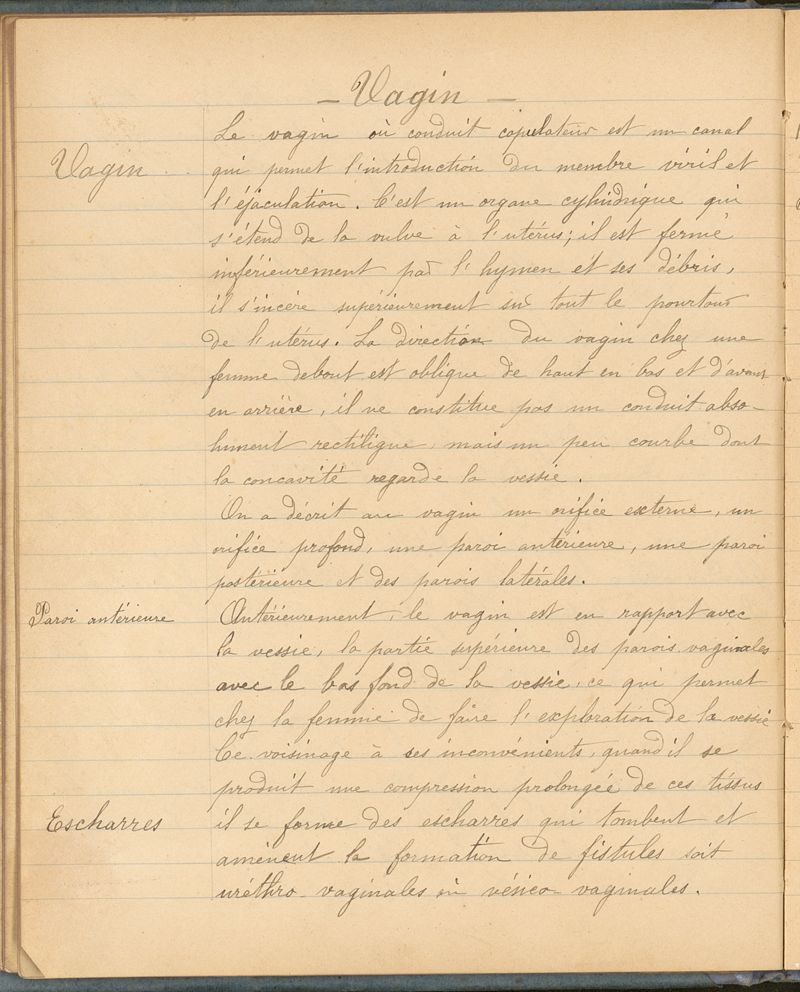 - Vagin -
Vagin
Le vagin où conduit copulateur est un canal
qui permet l'introduction du membre viril et
l'éjaculation. C'est un organe cylindrique qui
s'étend de la vulve à l'utérus; il est fermé
inférieurement par l'hymen et ses débris,
il s'incère supérieurement sur tout le pourtour
de l'utérus. La direction du vagin chez une
femme debout est oblique de haut en bas et d'avant
en arrière, il ne constitue pas un conduit abso-
lument rectiligne, mais un peu courbe dont
la concavité regarde la vessie.
On a décrit au vagin un orifice externe, un
orifice profond, une paroi antérieure, une paroi
postérieure et des parois latérales.
Paroi antérieure
Antérieurement, le vagin est en rapport avec
la vessie, la partie supérieure des parois vaginales
avec le bas fond de la vessie, ce qui permet
chez la femme de faire l'exploration de la vessie
Ce voisinage à ses inconvénients, quand il se
produit une compression prolongée de ces tissus
Escharres
il se forme des escharres qui tombent et
amènent la formation de fistules soit
uréthro-vaginales où vésico vaginales.